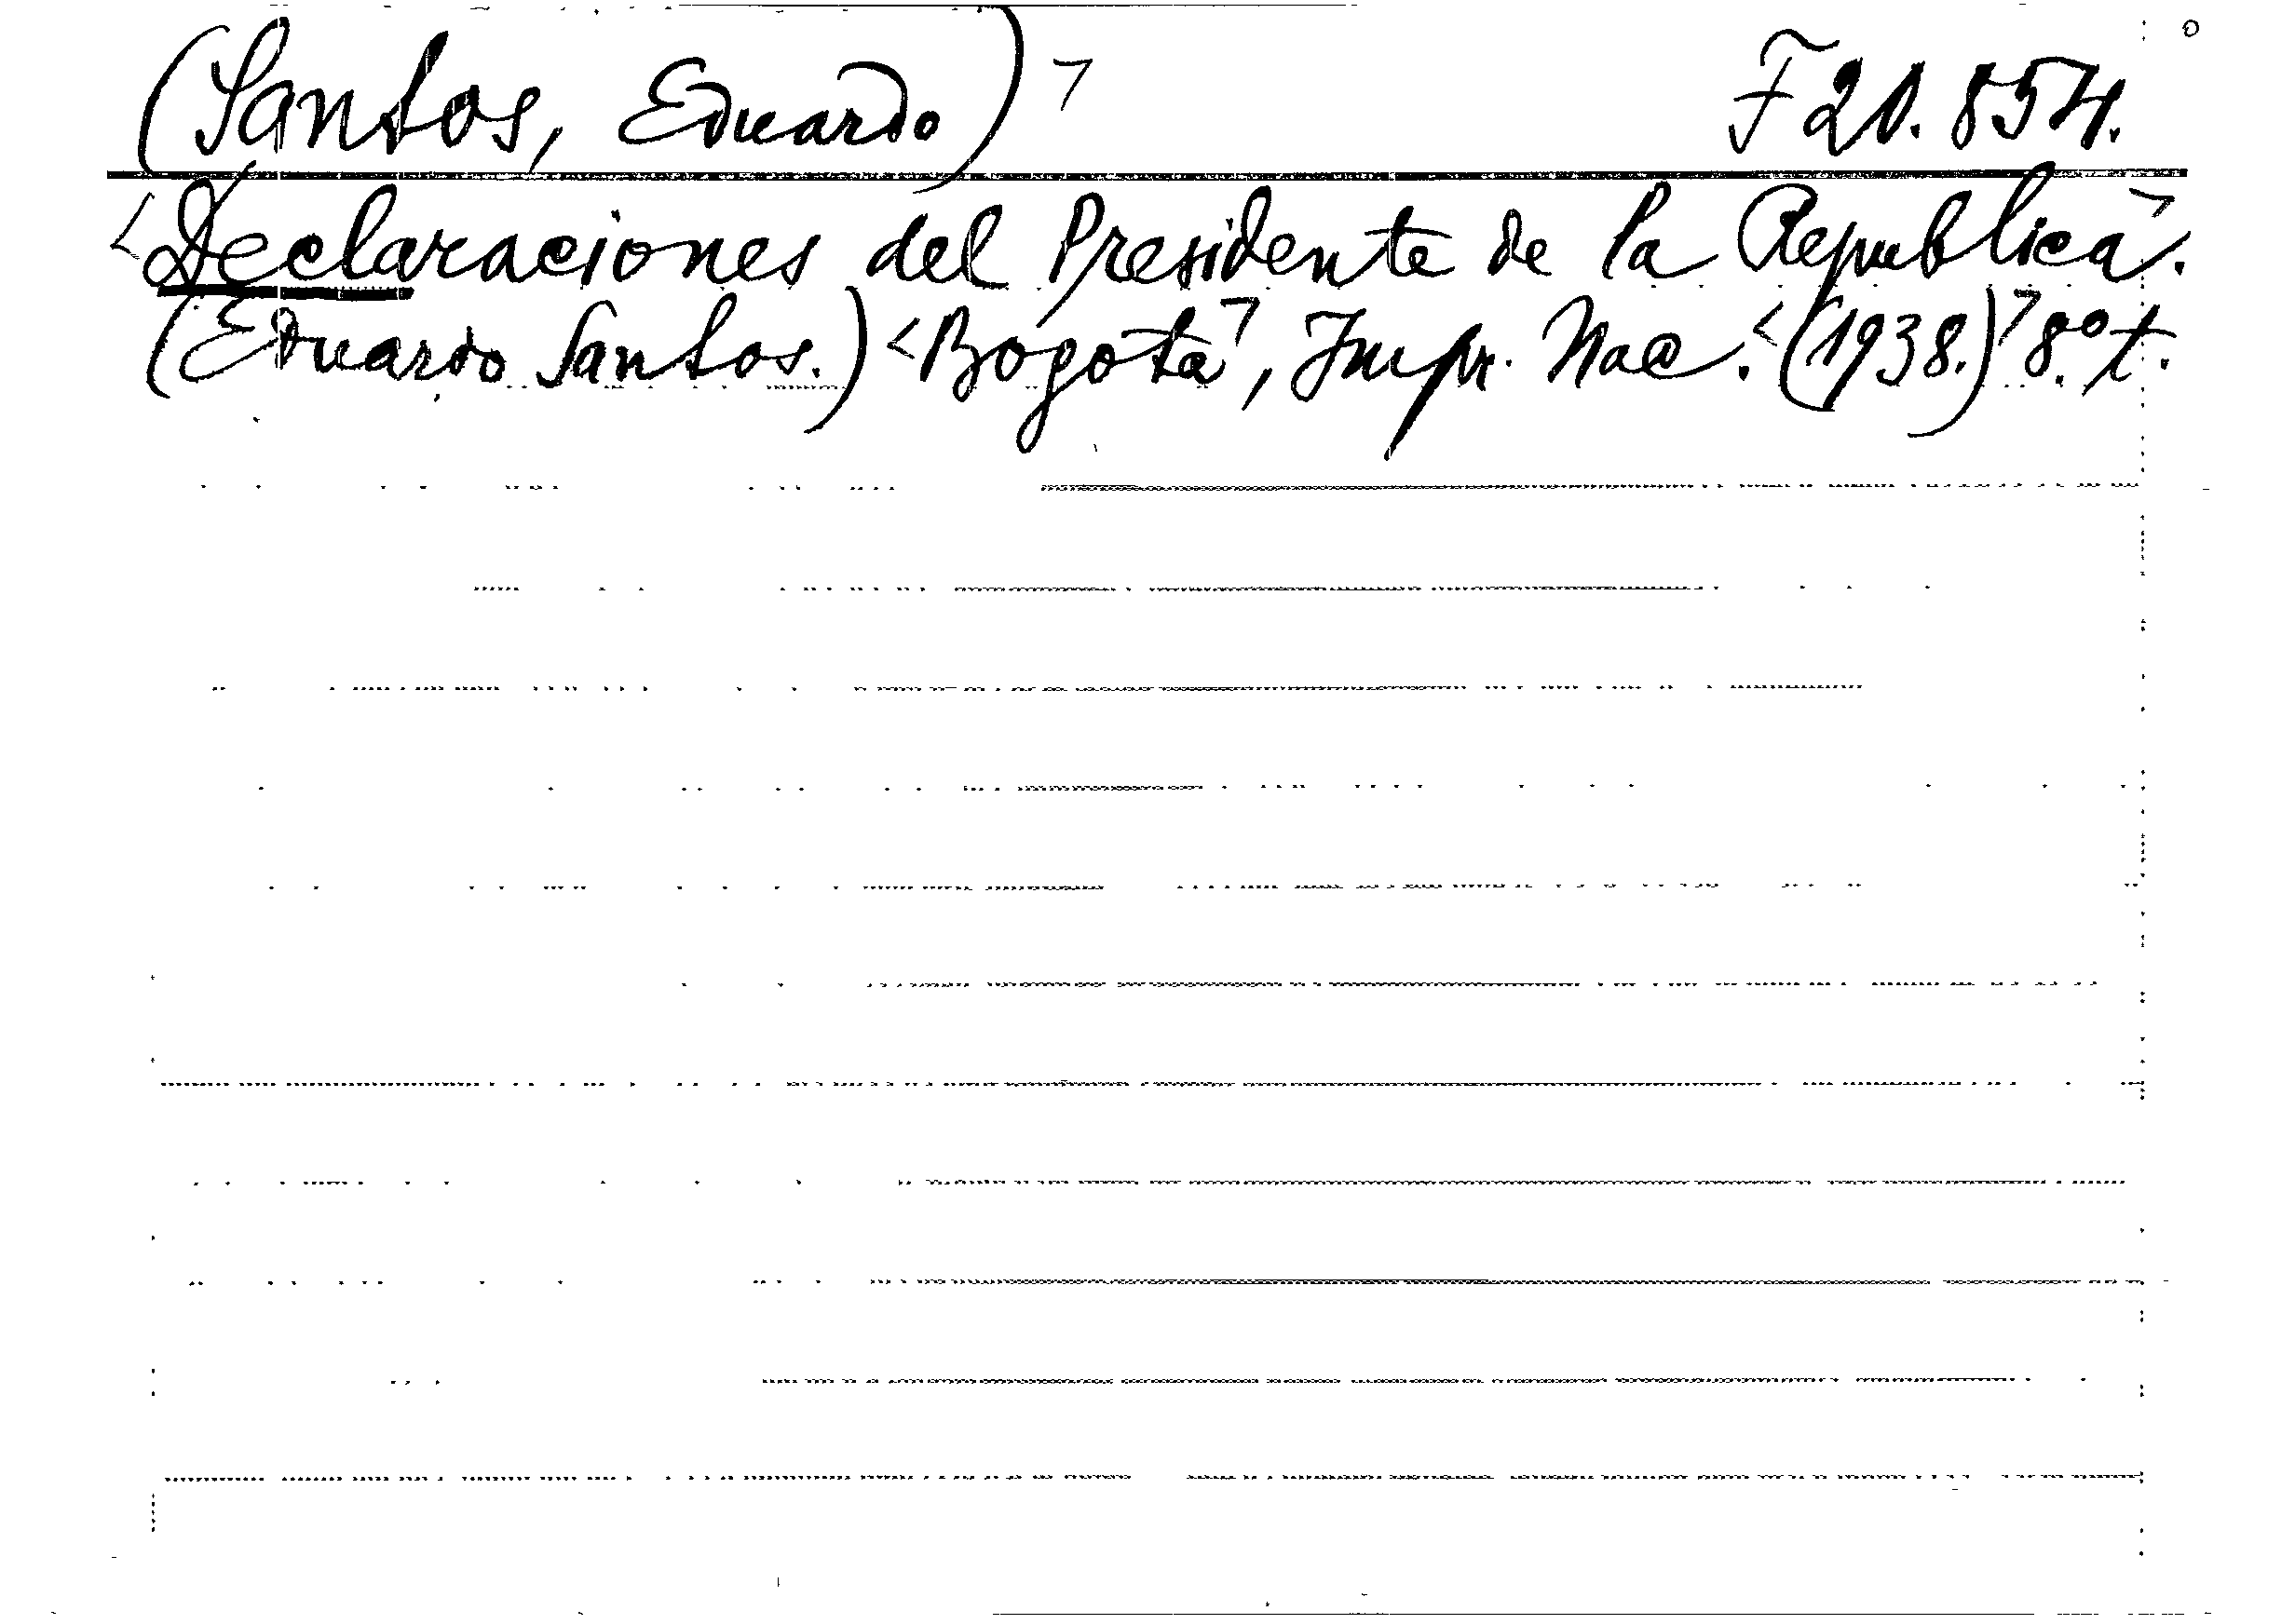 (Santos, Eduardo)> F 20.854.
<Declaraciones del Presidente de la Republica>.
(Eduardo Santos.) <Bogotá>, Impr. Nac. <(1938.)> 8.º t.